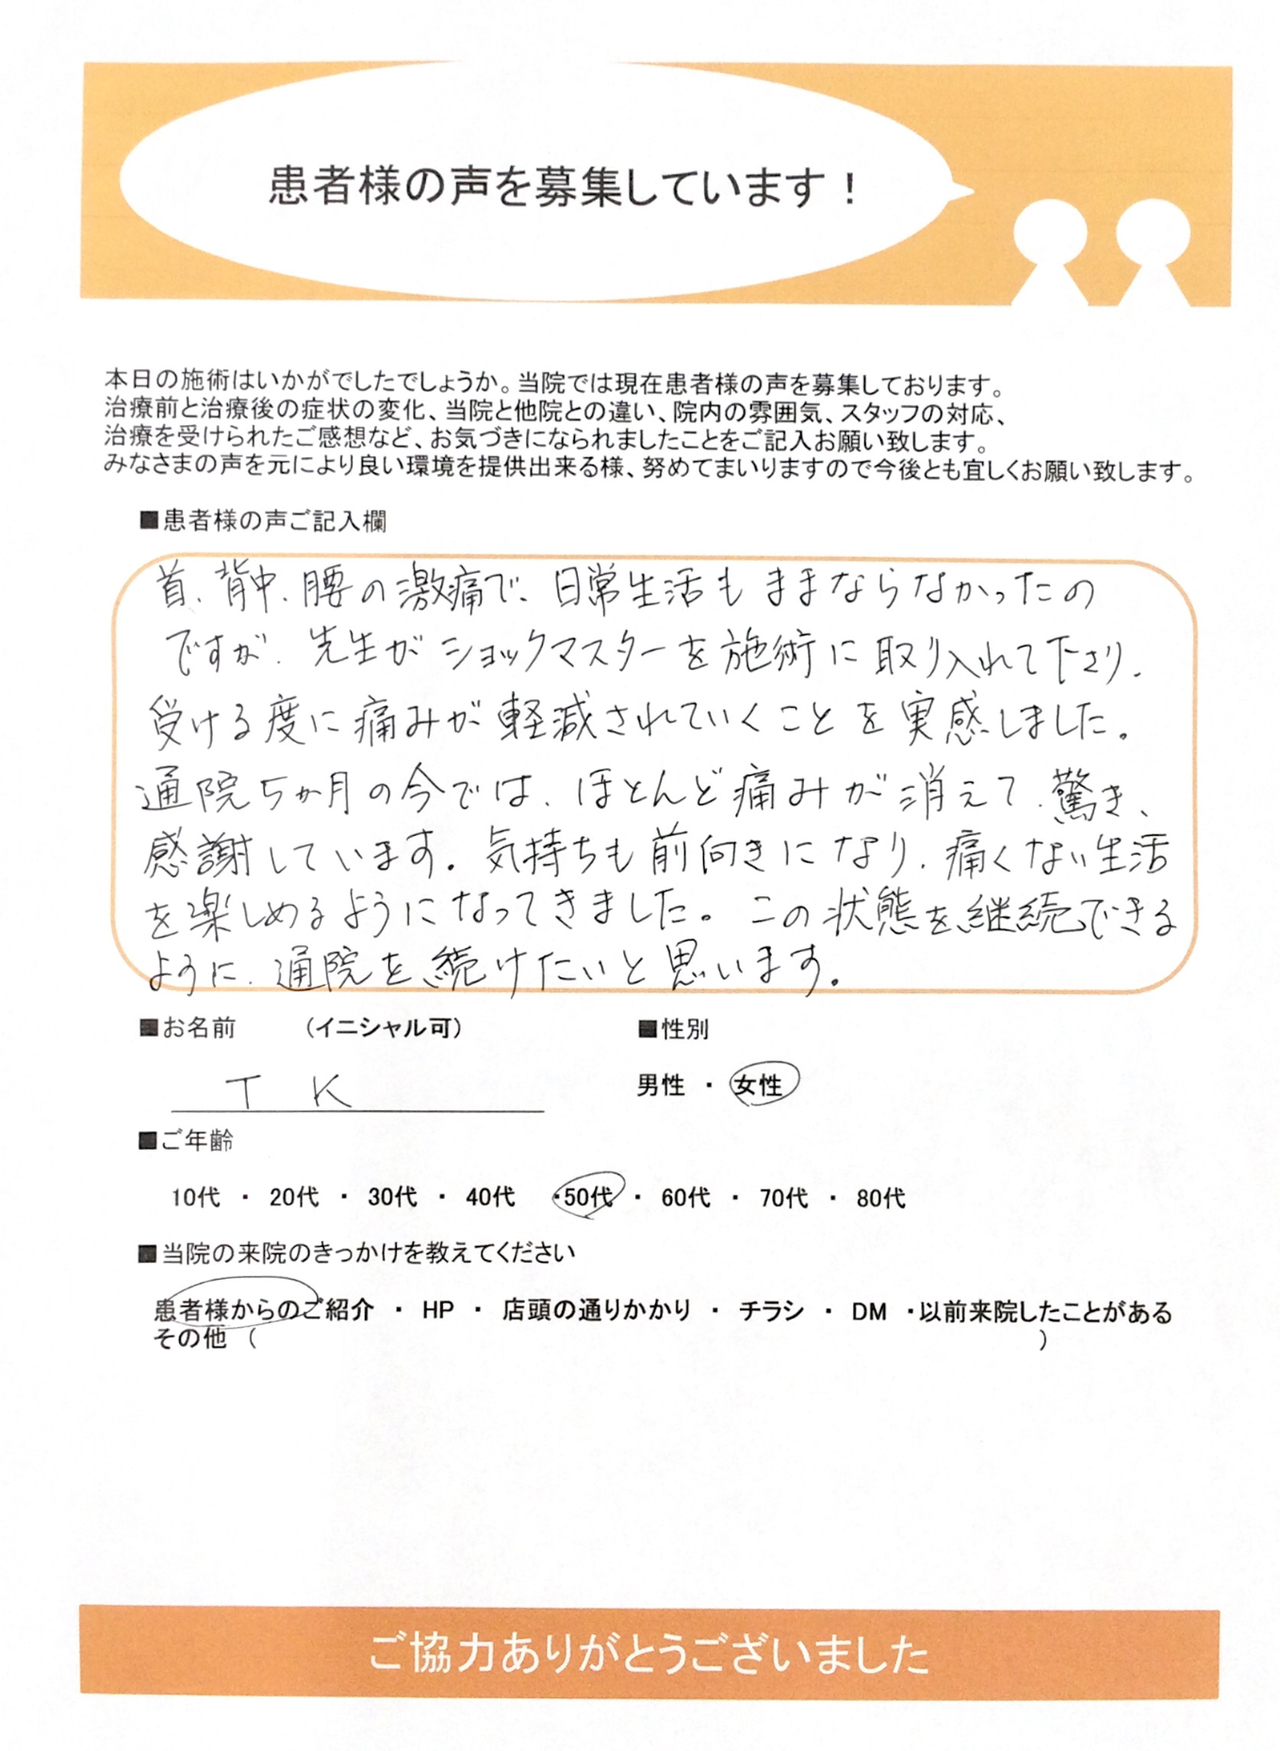 患者様の声を募集しています！
本日の施術はいかがでしたでしょうか。当院では現在患者様の声を募集しております。
治療前と治療後の症状の変化、当院と他院との違い、院内の雰囲気、スタッフの対応、
治療を受けられたご感想など、お気づきになられましたことをご記入お願い致します。
みなさまの声を元により良い環境を提供出来る様、努めてまいりますので今後とも宜しくお願い致します。
■患者様の声ご記入欄
首、背中、腰の激痛で、日常生活もままならなかったの
ですが、先生がショックマスターを施術に取り入れて下さり、
受ける度に痛みが軽減されていくことを実感しました。
通院5か月の今では、ほとんど痛みが消えて、驚き、
感謝しています。気持ちも前向きになり、痛くない生活
を楽しめるようになってきました。この状態を継続できる
ように、通院を続けたいと思います。
■お名前 （イニシャル可） ■性別
T K 男性 ・ 女性
■ご年齢
10代 ・ 20代 ・ 30代 ・ 40代 ・50代 ・ 60代 ・ 70代 ・ 80代
■当院の来院のきっかけを教えてください
患者様からのご紹介 ・ HP ・ 店頭の通りかかり ・ チラシ ・ DM ・以前来院したことがある
その他 （ ）
ご協力ありがとうございました